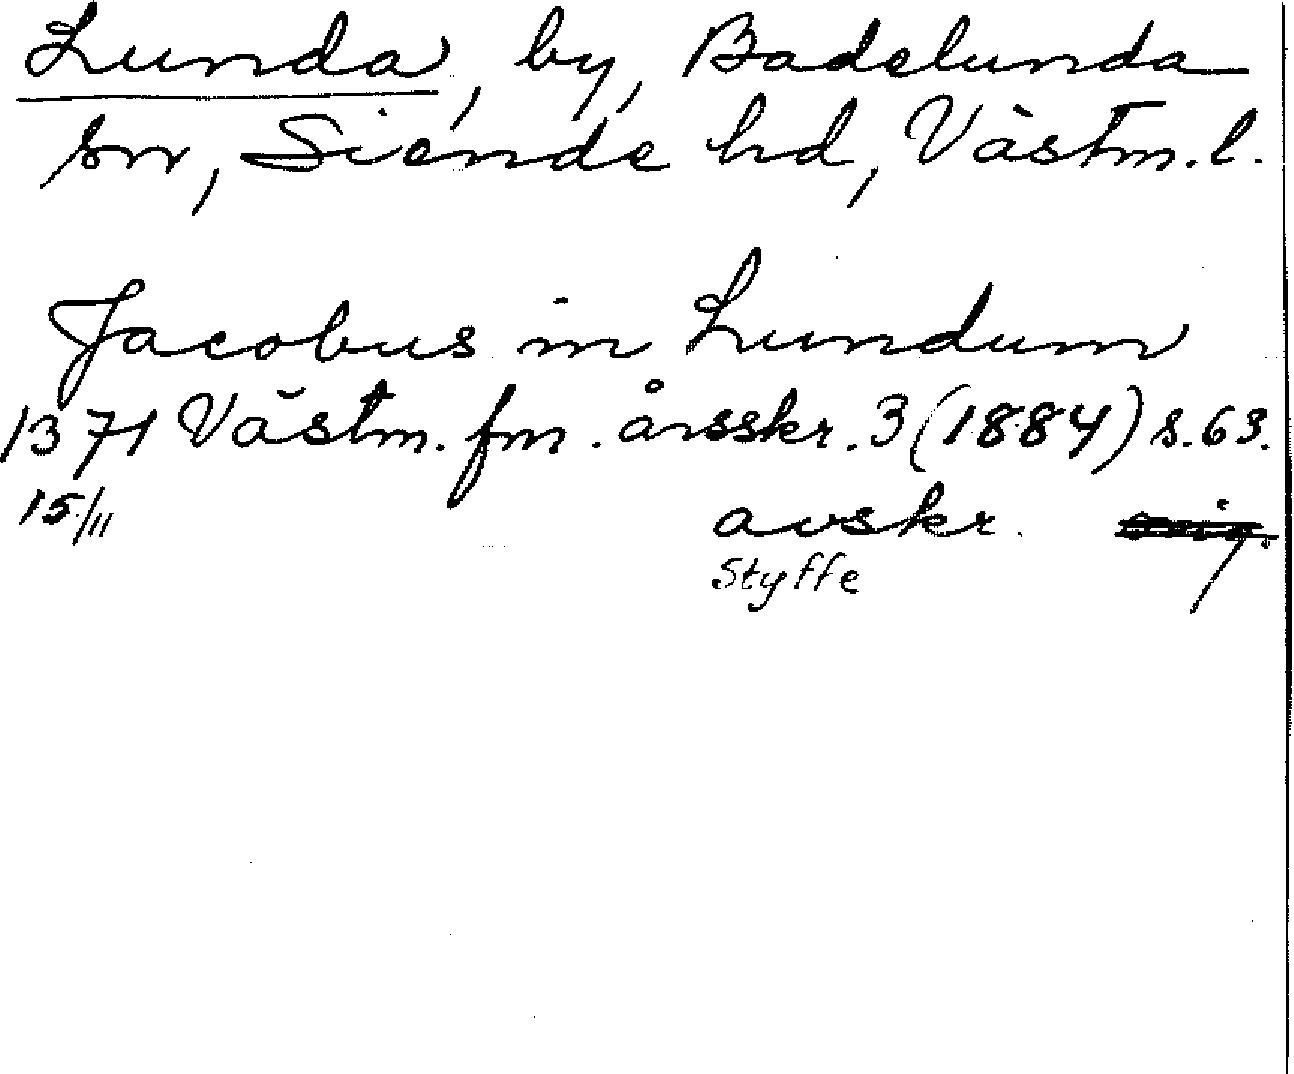 Lunda, by, Badelunda
sn, Siende hd, Västm. l.
Jacobus in Lundum
1371 Västm. fm. årsskr. 3 (1884) s. 63.
15/11 avskr.
Styffe